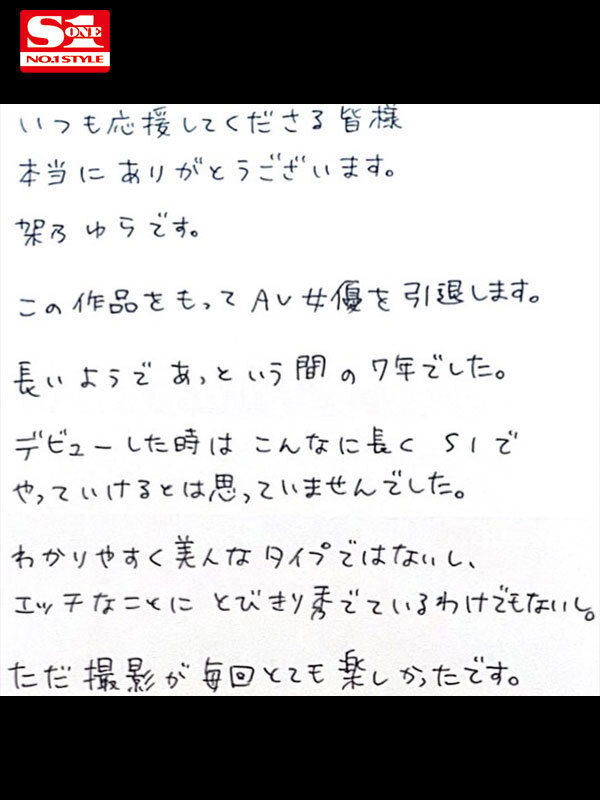 S1
ONE
NO.1 STYLE
いつも応援してくださる皆様
本当にありがとうございます。
架乃ゆらです。
この作品をもってAV女優を引退します。
長いようであっという間の7年でした。
デビューした時はこんなに長くS1で
やっていけるとは思っていませんでした。
わかりやすく美人なタイプではないし、
エッチなことにとびきり秀でているわけでもないし。
ただ撮影が毎回とても楽しかったです。